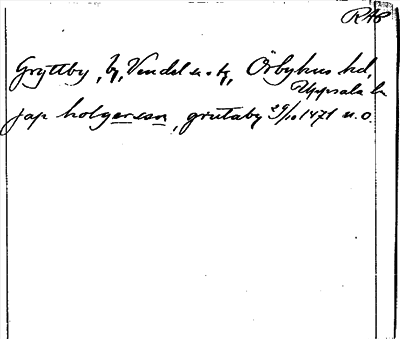 RAP
Gryttby, by, Vendel sn o. tg, Örbyhus hd,
Uppsala ln
jap holgersson, grutaby 29/10 1471 u. o.